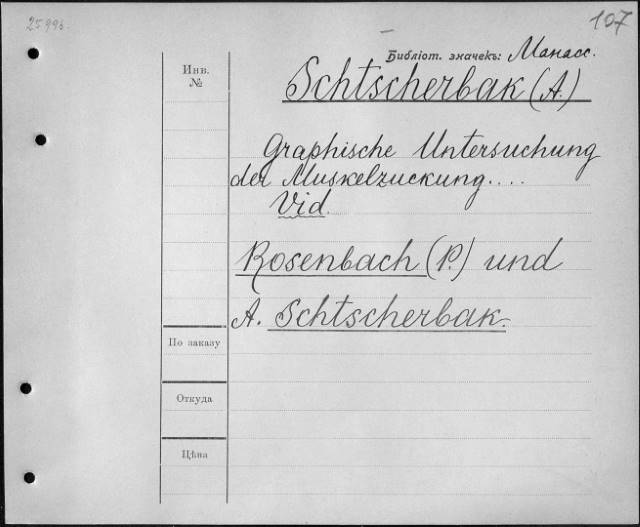 25996
107
Библiот. значекъ: Манасс.
Инв.
№
Schtscherbak (A.)
Graphische Untersuchung
der Muskelzuckung....
Vid.
Rosenbach (P.) und
A. Schtscherbak.
По заказу
Откуда
Цѣна